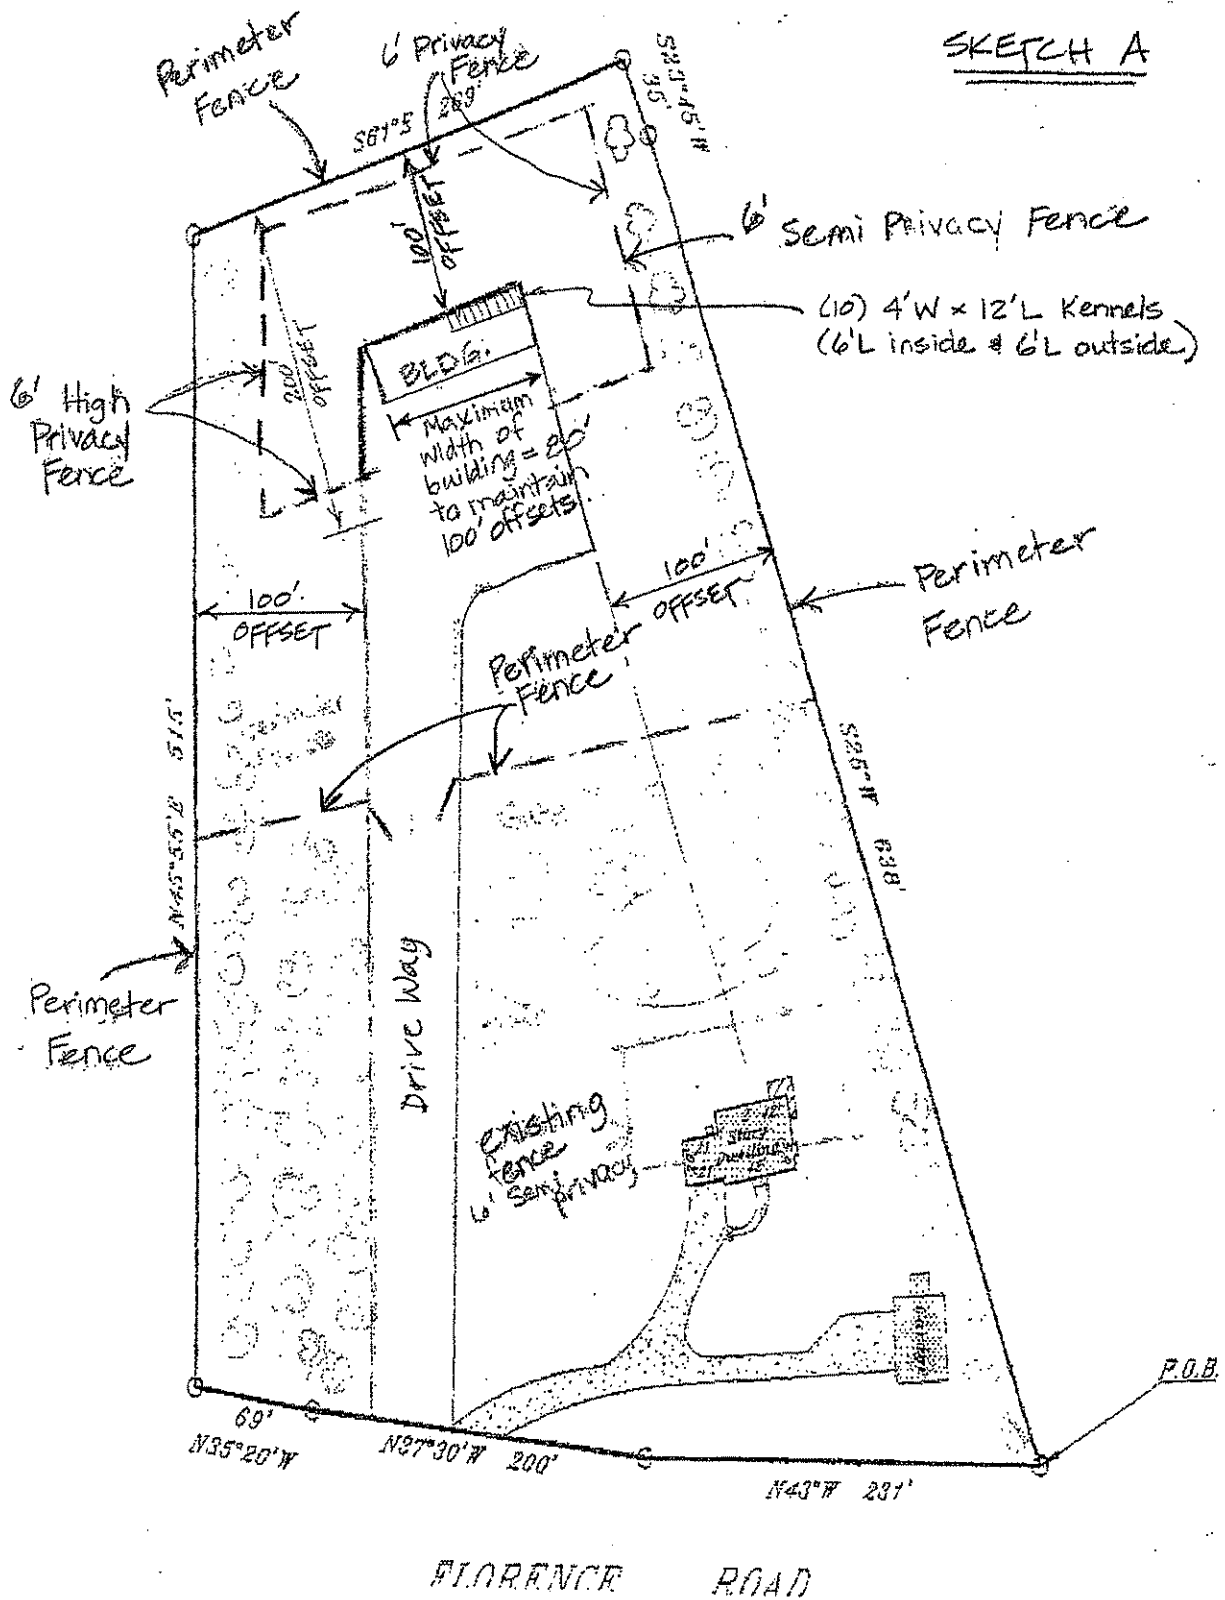 SKETCH A
Perimeter
Fence
6' Privacy
Fence
S61°E 269'
S23°15'W
35'
6' Semi Privacy Fence
(10) 4'W x 12'L Kennels
(6'L inside & 6'L outside)
100'
OFFSET
200'
OFFSET
6' High
Privacy
Fence
BLDG.
Maximum
width of
building = 80'
to maintain
100' offsets.
100'
OFFSET
100'
OFFSET
Perimeter
Fence
Perimeter
Fence
N45°55'E 515'
S26°W 638'
Gate
Perimeter
Fence
Drive Way
existing
fence
6' Semi
privacy
Story
Dwelling
P.O.B.
69'
N35°20'W
N37°30'W 200'
N43°W 231'
FLORENCE ROAD